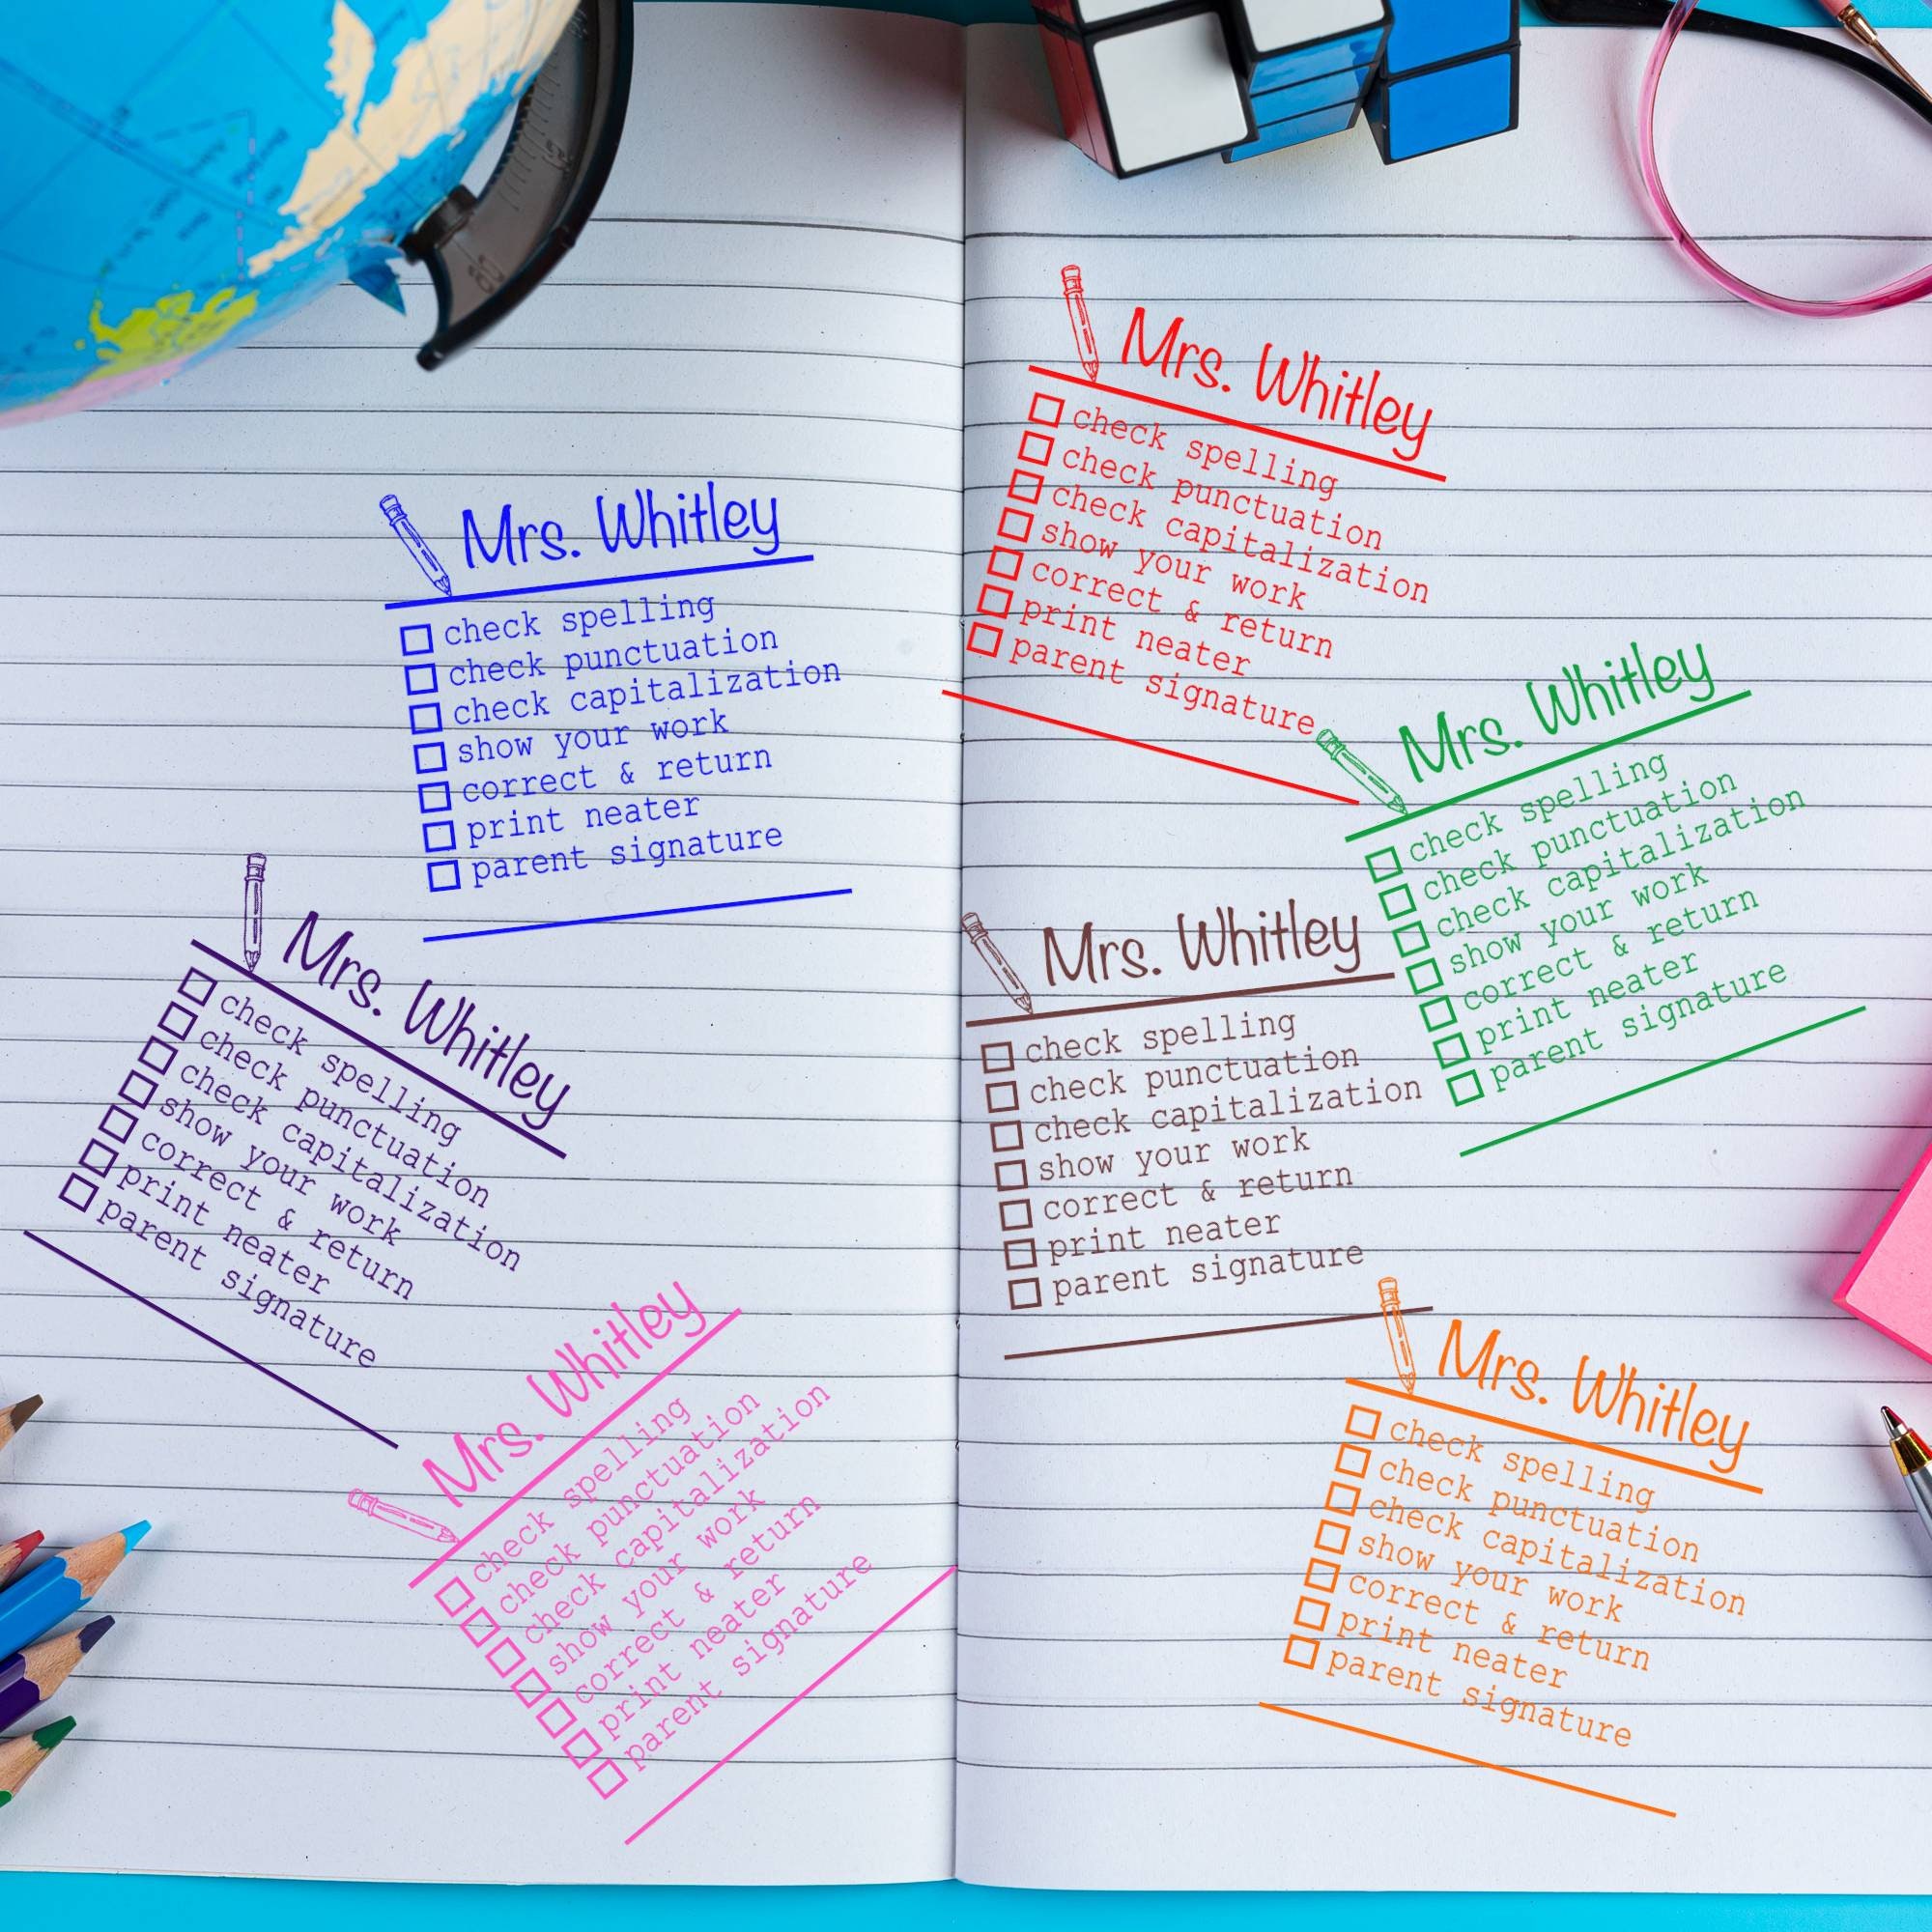 Mrs. Whitley
check spelling
check punctuation
check capitalization
show your work
correct & return
print neater
parent signature
Mrs. Whitley
check spelling
check punctuation
check capitalization
show your work
correct & return
print neater
parent signature
Mrs. Whitley
check spelling
check punctuation
check capitalization
show your work
correct & return
print neater
parent signature
Mrs. Whitley
check spelling
check punctuation
check capitalization
show your work
correct & return
print neater
parent signature
Mrs. Whitley
check spelling
check punctuation
check capitalization
show your work
correct & return
print neater
parent signature
Mrs. Whitley
check spelling
check punctuation
check capitalization
show your work
correct & return
print neater
parent signature
Mrs. Whitley
check spelling
check punctuation
check capitalization
show your work
correct & return
print neater
parent signature